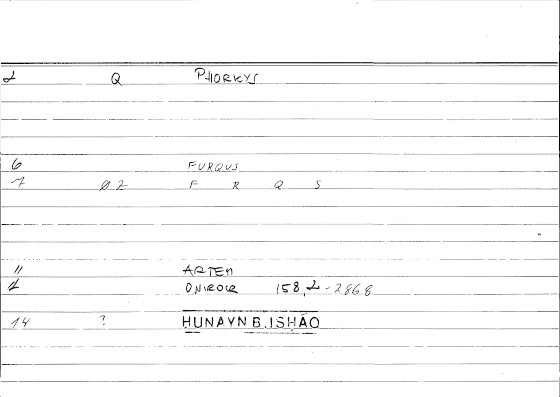 2 Q PHORKYS
6 FURQUS
7 02 F R Q S
11 ARTEM
1 ONIROCR 158,2-2868
14 ? HUNAYN B. ISHAQ